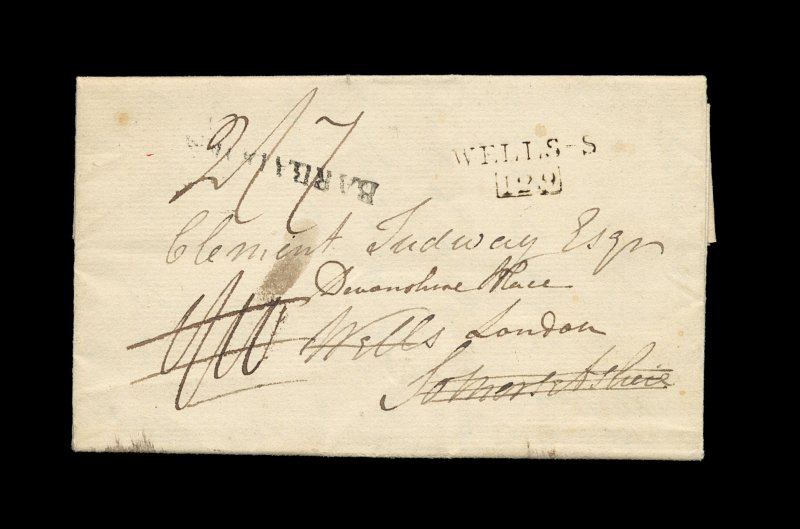 2/7
BARBADOES
WELLS-S
129
Clement Tudway Esqr
Devonshire Place
Wells London
Somersetshire